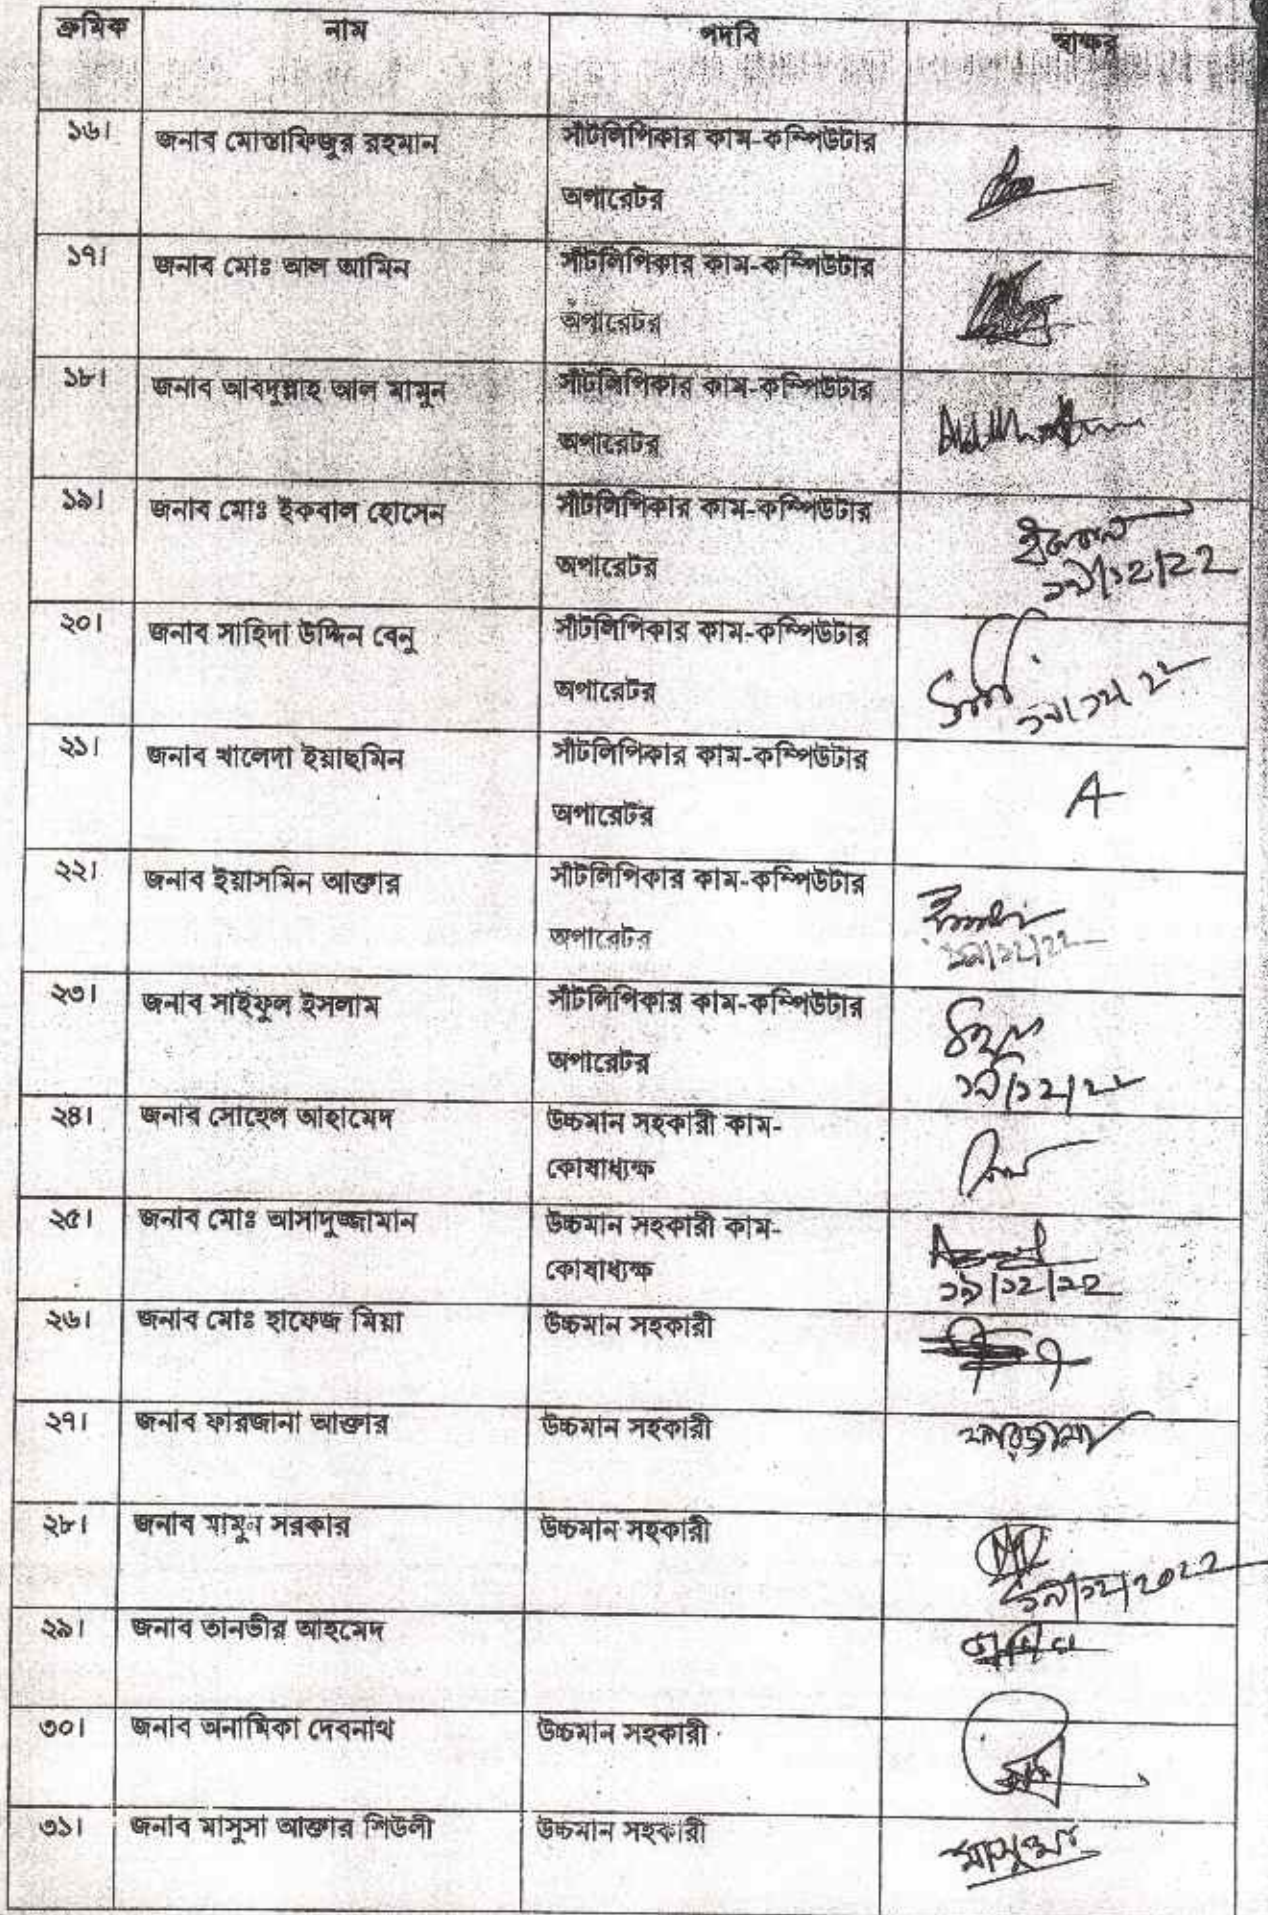 ক্রমিক নাম পদবি স্বাক্ষর
১৬। জনাব মোস্তাফিজুর রহমান সাঁটলিপিকার কাম-কম্পিউটার
অপারেটর
১৭। জনাব মোঃ আল আমিন সাঁটলিপিকার কাম-কম্পিউটার
অপারেটর
১৮। জনাব আবদুল্লাহ আল মামুন সাঁটলিপিকার কাম-কম্পিউটার
অপারেটর
১৯। জনাব মোঃ ইকবাল হোসেন সাঁটলিপিকার কাম-কম্পিউটার
অপারেটর
১৯/১২/২২
২০। জনাব সাহিদা উদ্দিন বেনু সাঁটলিপিকার কাম-কম্পিউটার
অপারেটর
১৯/১২/২২
২১। জনাব খালেদা ইয়াছমিন সাঁটলিপিকার কাম-কম্পিউটার
অপারেটর A
২২। জনাব ইয়াসমিন আক্তার সাঁটলিপিকার কাম-কম্পিউটার
অপারেটর ১৯/১২/২২
২৩। জনাব সাইফুল ইসলাম সাঁটলিপিকার কাম-কম্পিউটার
অপারেটর
১৯/১২/২২
২৪। জনাব সোহেল আহামেদ উচ্চমান সহকারী কাম-
কোষাধ্যক্ষ
২৫। জনাব মোঃ আসাদুজ্জামান উচ্চমান সহকারী কাম-
কোষাধ্যক্ষ ১৯/১২/২২
২৬। জনাব মোঃ হাফেজ মিয়া উচ্চমান সহকারী
২৭। জনাব ফারজানা আক্তার উচ্চমান সহকারী ফারজানা
২৮। জনাব মামুন সরকার উচ্চমান সহকারী
১৯/১২/২০২২
২৯। জনাব তানভীর আহমেদ
৩০। জনাব অনামিকা দেবনাথ উচ্চমান সহকারী
৩১। জনাব মাসুসা আক্তার শিউলী উচ্চমান সহকারী